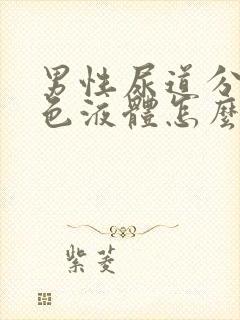 男性尿道分
色液體怎麼
紫菱